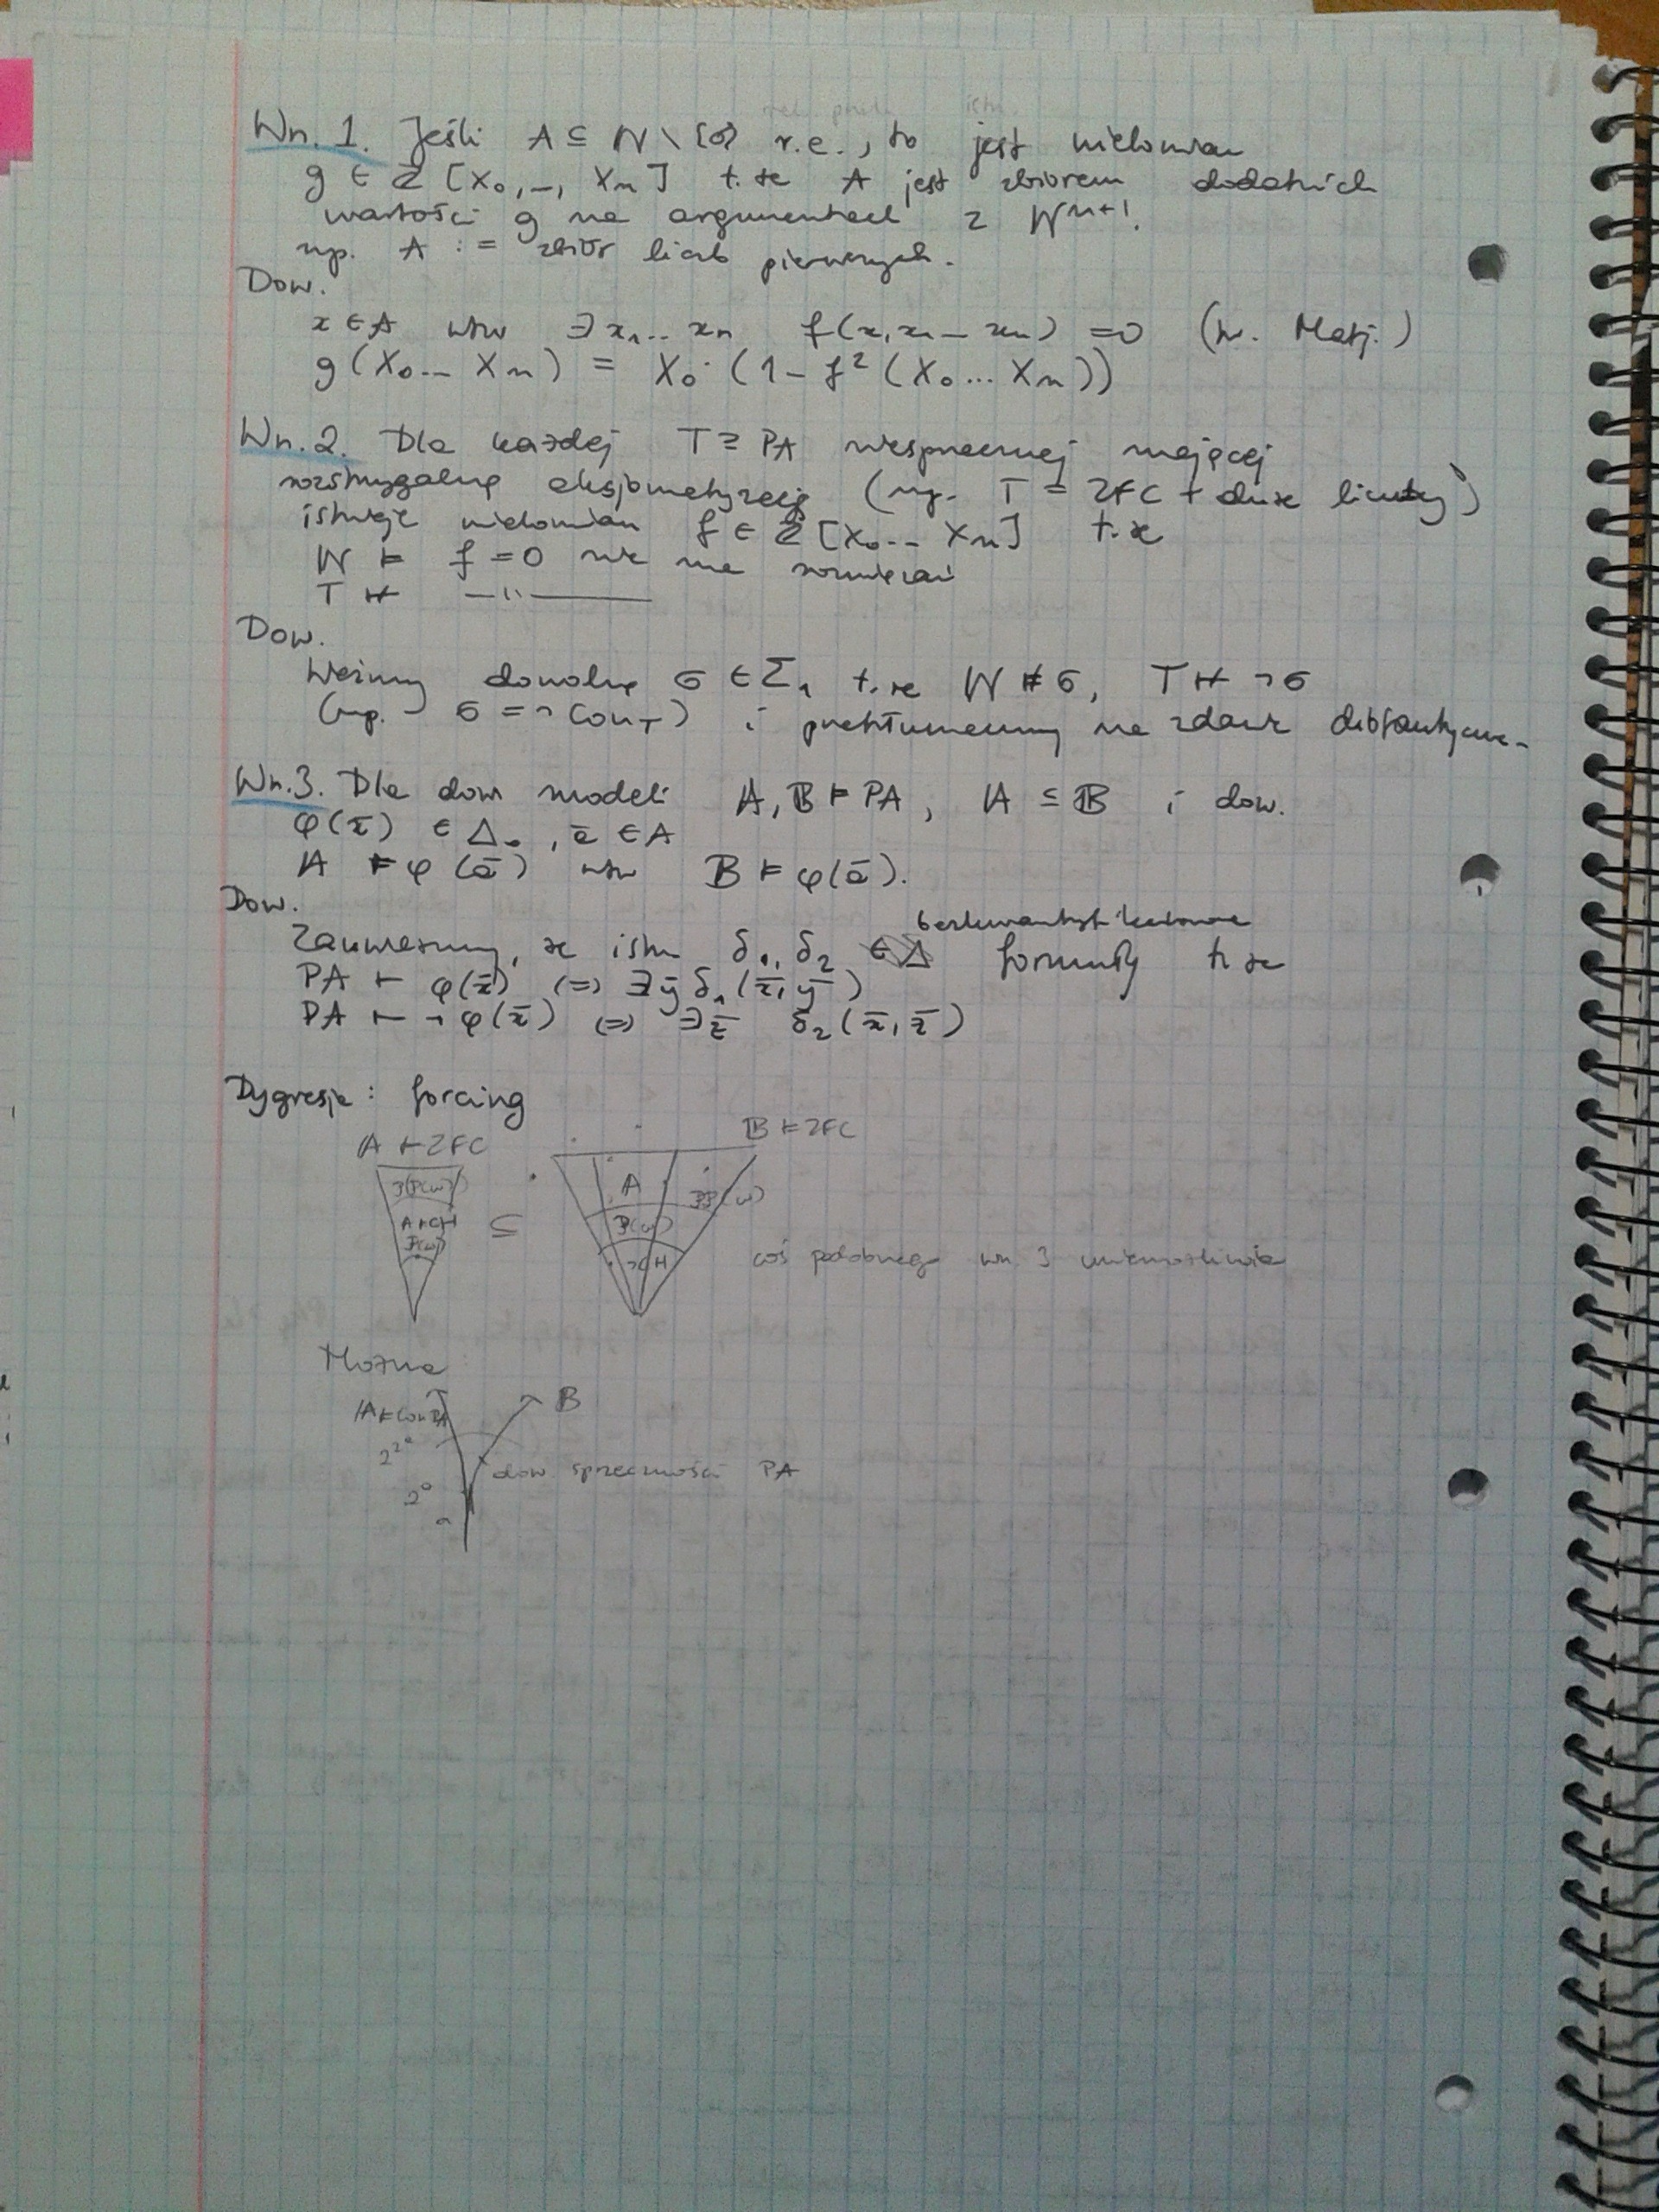 Wn. 1. Jeśli A ⊆ ℕ \ {0} r.e., to jest wielomian
g ∈ ℤ [X₀, –, Xₙ] t. że A jest zbiorem dodatnich
wartości g na argumentach z ℕⁿ⁺¹.
np. A := zbiór liczb pierwszych.
Dow.
x ∈ A wtw ∃x₁...xₙ f(x, x₁ – xₙ) = 0 (tw. Matj.)
g(X₀... Xₙ) = X₀·(1 – f²(X₀...Xₙ))
Wn. 2. Dla każdej T ⊇ PA niesprzecznej mającej
rozstrzygalną aksjomatyzację (np. T = ZFC + duże liczby)
istnieje wielomian f ∈ ℤ [X₀... Xₙ] t. że
ℕ ⊨ f = 0 nie ma rozwiązań
T ⊬ —"———
Dow.
Weźmy dowolne σ ∈ Σ₁ t. że ℕ ⊭ σ, T ⊬ ¬σ
(np. σ = ¬Con_T) i przetłumaczmy na zdanie diofantyczne.
Wn. 3. Dla dow modeli 𝔸, 𝔹 ⊨ PA, 𝔸 ⊆ 𝔹 i dow.
φ(x̄) ∈ Δ₀, ā ∈ A
𝔸 ⊨ φ(ā) wtw 𝔹 ⊨ φ(ā).
Dow.
bezkwantyfikatorowe
Zauważmy, że istn δ₁, δ₂ formuły t. że
PA ⊢ φ(x̄) ⇔ ∃ȳ δ₁(x̄, ȳ)
PA ⊢ ¬φ(x̄) ⇔ ∃z̄ δ₂(x̄, z̄)
Dygresja: forcing
𝔸 ⊢ ZFC 𝔹 ⊨ ZFC
P(P(ω)) A PP(ω)
A ⊨ CH ⊆ P(ω)
P(ω) ¬CH coś podobnego wn. 3 uniemożliwia
Można
𝔸 ⊨ Con PA 𝔹
2^2^a
dow. sprzeczności PA
2^a
a